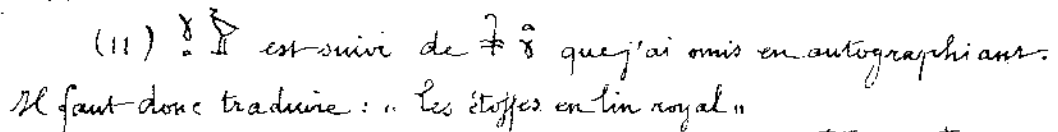 (11) est suivi de que j'ai omis en autographiant.
Il faut donc traduire : „ Les étoffes en lin royal „